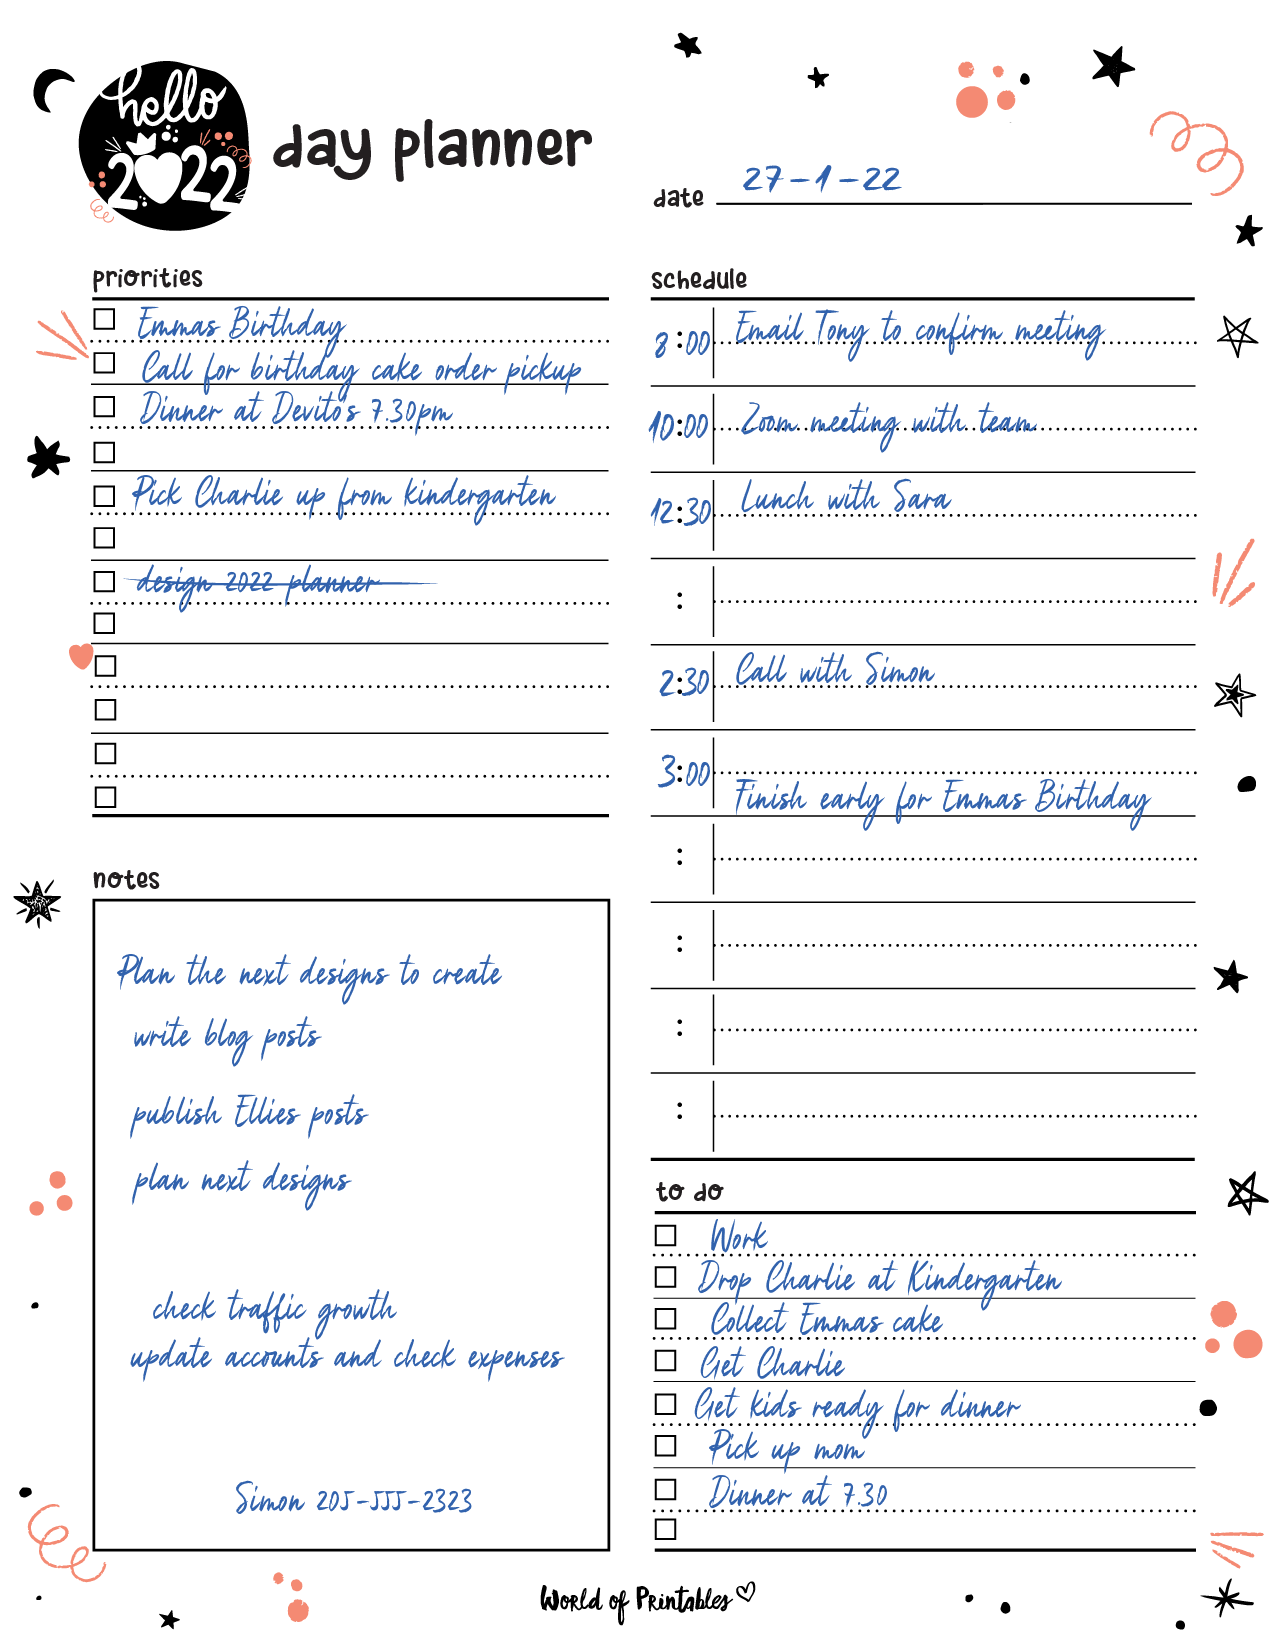 hello
2022
day planner
date 27-1-22
priorities
Emmas Birthday
Call for birthday cake order pickup
Dinner at Devito's 7.30pm
Pick Charlie up from kindergarten
design 2022 planner
notes
Plan the next designs to create
write blog posts
publish Ellies posts
plan next designs
check traffic growth
update accounts and check expenses
Simon 205-555-2323
schedule
8:00 Email Tony to confirm meeting
10:00 Zoom meeting with team
12:30 Lunch with Sara
:
2:30 Call with Simon
3:00 Finish early for Emmas Birthday
:
:
:
:
to do
Work
Drop Charlie at Kindergarten
Collect Emmas cake
Get Charlie
Get kids ready for dinner
Pick up mom
Dinner at 7.30
World of Printables